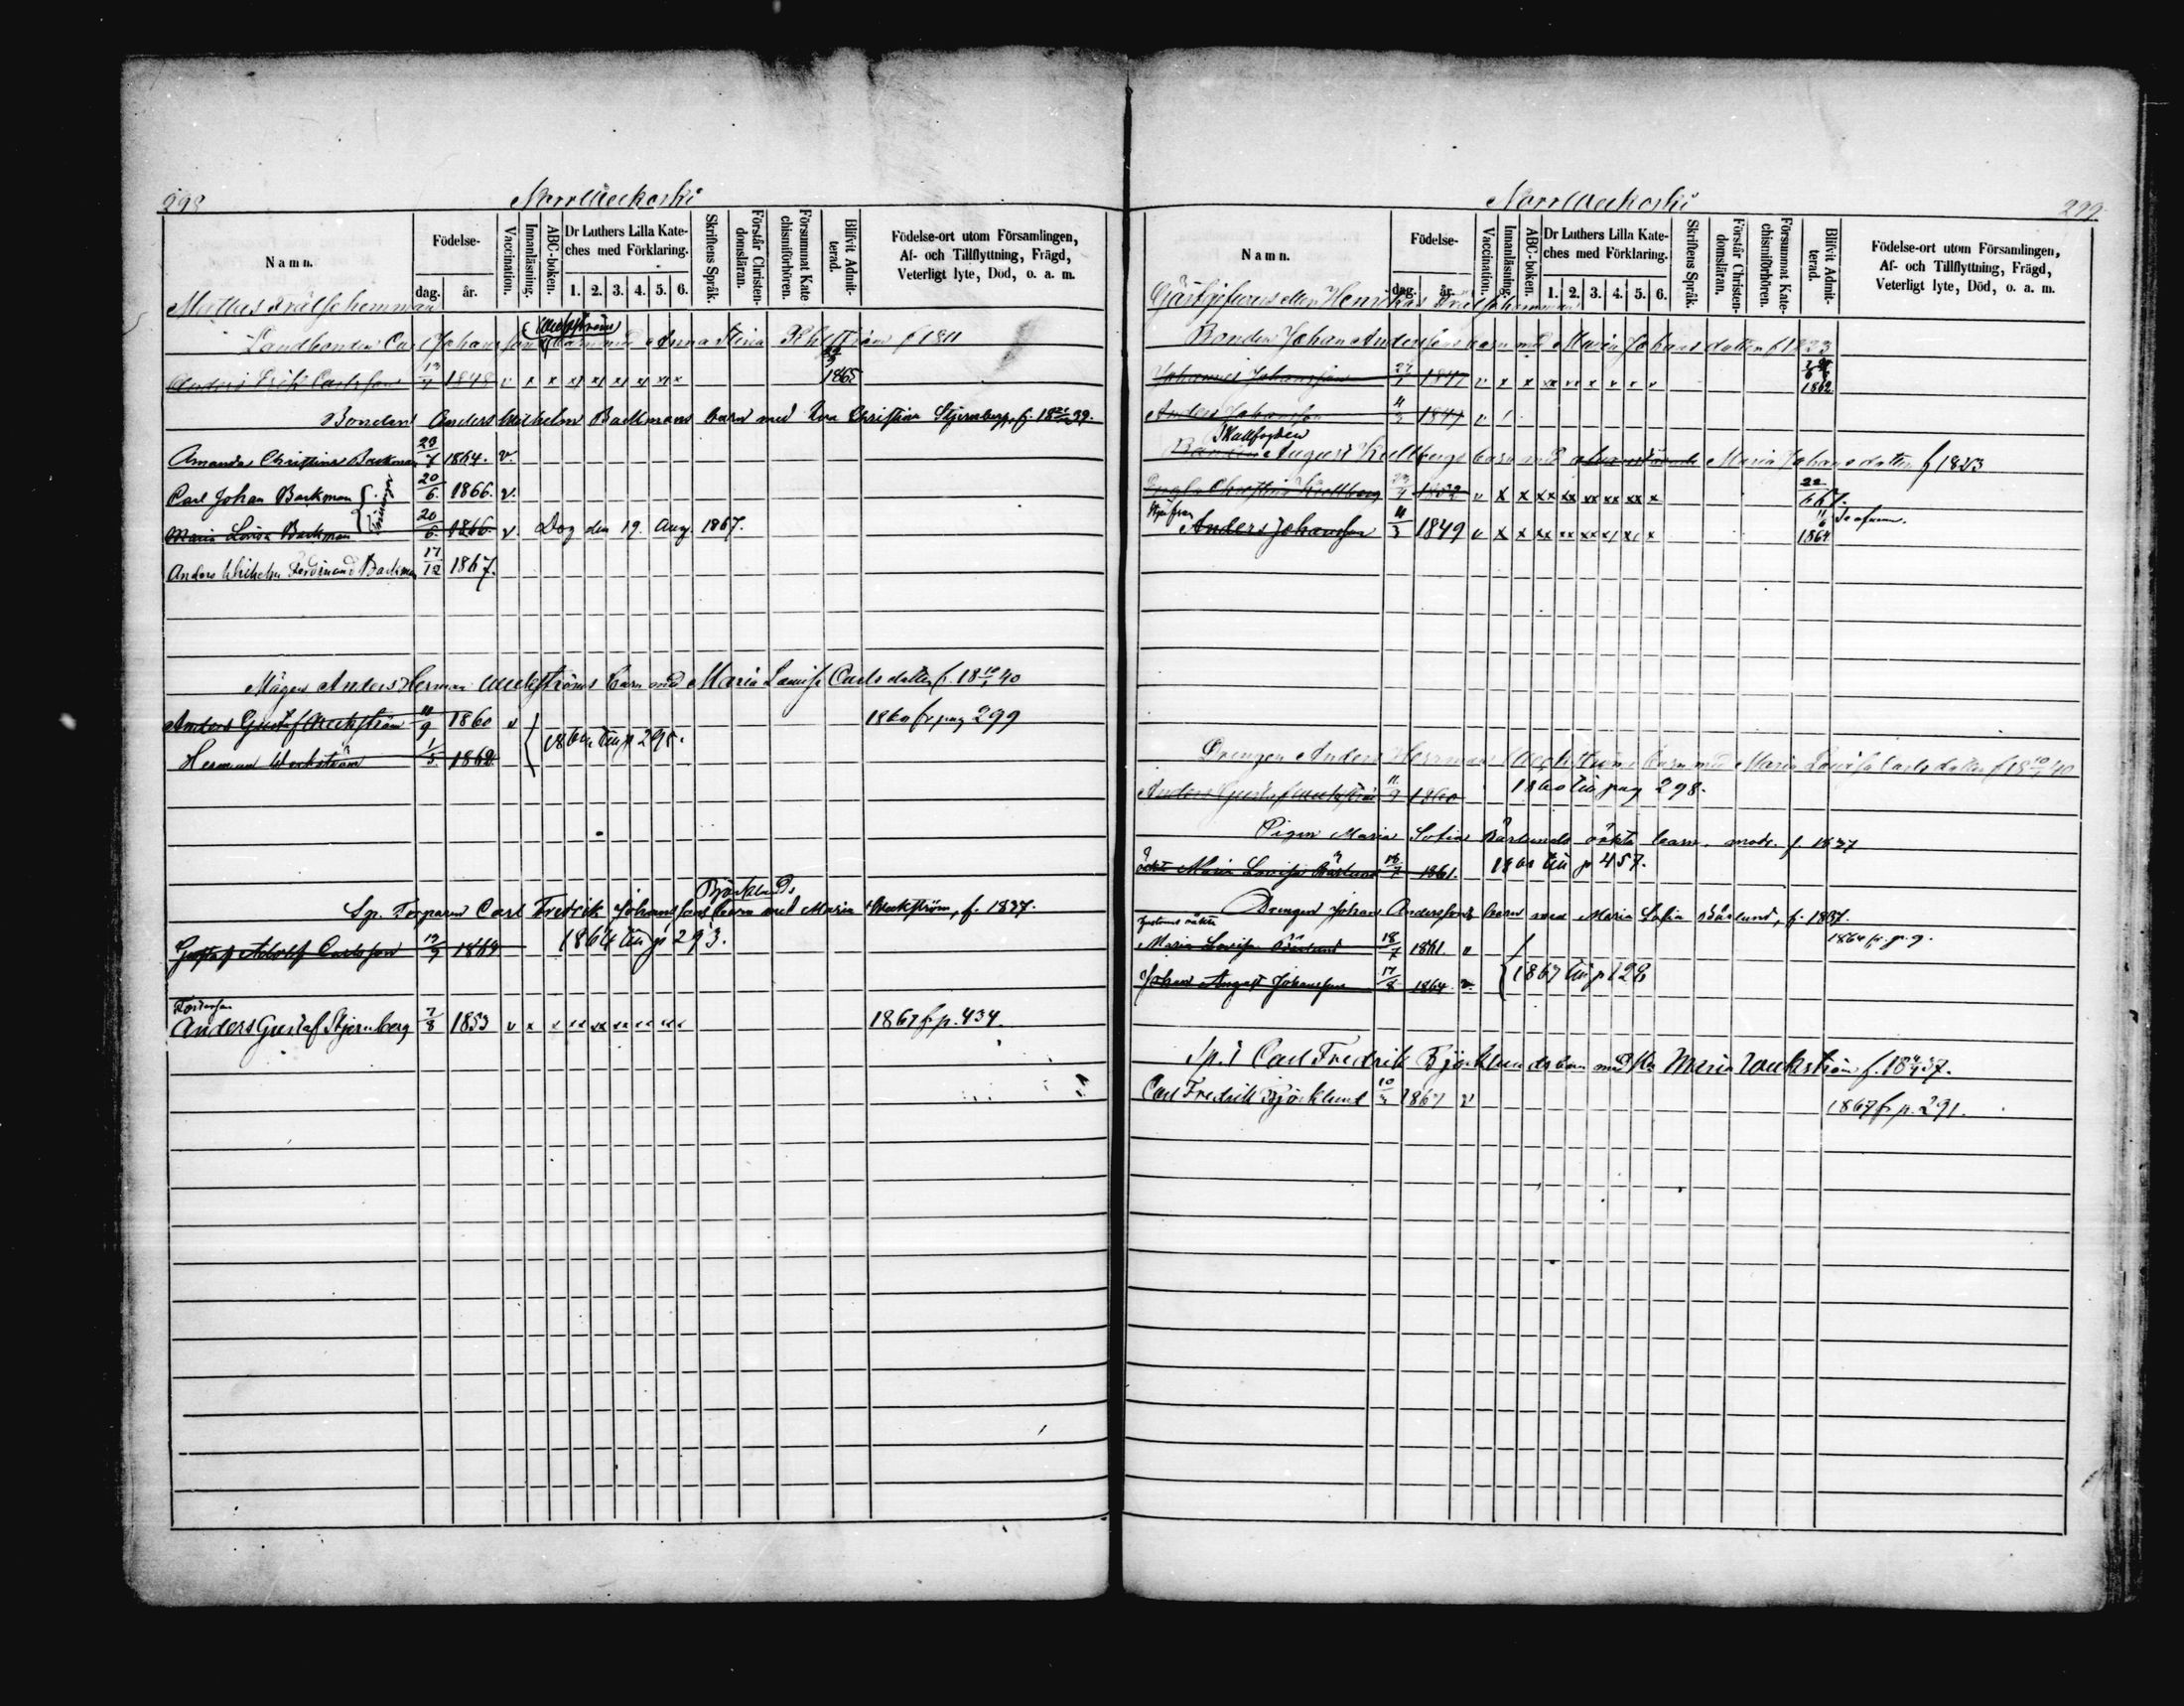 298
Norr Weckoski
Namn.
Födelse-
dag.
år.
Vaccination.
Innanläsning.
ABC-boken.
Dr Luthers Lilla Kate-
ches med Förklaring.
1. 2. 3. 4. 5. 6.
Skriftens Språk.
Förstår Christen-
domsläran.
Försummat Kate
chismiförhören.
Blifvit Admit-
terad.
Födelse-ort utom Församlingen,
Af- och Tillflyttning, Frägd,
Veterligt lyte, Död, o. a. m.
Frälsehemman
Weckströms
Landbonden Carl Johansson barn med Anna Stina f 1811
Anders Erik Carlsson 13/4 1848 v x x x/ x/ x/ x/ x/ x 1865
Bonden Anders Wilhelm Backmans barn med Christina Stjernberg, f. 18 39.
Amanda Christina Backman 23/7 1864. v.
Carl Johan Backman 20/6. 1866. v.
Maria Lovisa Backman 20/6. 1866. v. Dog den 19. Aug. 1867.
Anders Wilhelm Ferdinand Backman 17/12 1867.
Mågen Anders Herman Weckströms barn med Maria Lovisa Carlsdotter f. 18 40
Anders Gustaf Weckström 11/9 1860 v 1860 fr pag 299
Herman Weckström 1/5 1862 till p 295.
Björklunds
Sp. Torparen Carl Fredrik Johanssons barn med Maria Weckström, f. 1837.
Gustaf Adolf Carlsson 1864 till p 293.
Fosterson
Anders Gustaf Stjernberg 7/8 1853 v x x xx xx xx xx xx 1867 fr p. 434.
Norr Weckoski
299
Namn.
Födelse-
dag.
år.
Vaccination.
Innanläsning.
ABC-boken.
Dr Luthers Lilla Kate-
ches med Förklaring.
1. 2. 3. 4. 5. 6.
Skriftens Språk.
Förstår Christen-
domsläran.
Försummat Kate-
chismiförhören.
Blifvit Admit-
terad.
Födelse-ort utom Församlingen,
Af- och Tillflyttning, Frägd,
Veterligt lyte, Död, o. a. m.
Gästgifvars eller Henrikas Frälsehemman
Bonden Johan Anderssons barn med Maria Johansdotter f 1823
Johannes Johansson 1847 v x x xx xx x x x v 1862
Anders Johansson 1849 v
August Kullbergs barn med Maria Johansdotter f 1823
Christina Kullberg v x x xx xx xx xx xx x 22/6 67.
Anders Johansson 11/3 1849 v x x xx xx xx x/ x/ x 11/6 1864
Drengen Anders Herrman Weckströms barn med Maria Lovisa Carlsdotter f 18 40
Anders Gustaf Weckström 11/9 1860 1860 till pag 298.
Pigan Maria Sofia Bärlunds oäkta barn. modr. f 1837
oäkta Maria Lovisa Bärlund 18/7 1861. till p 457.
Drengen Johan Anderssons barn med Maria Sofia Bärlund, f. 1837.
Maria Lovisa Bärlund 18/7 1861. v 1864 fr. p. 9.
Johan August Johansson 17/8 1864. v. 1867 till p 128
Sp. T Carl Fredrik Björklunds barn med Maria Weckström f. 18 37.
Carl Fredrik Björklund 1867 v 1867 fr p. 291.